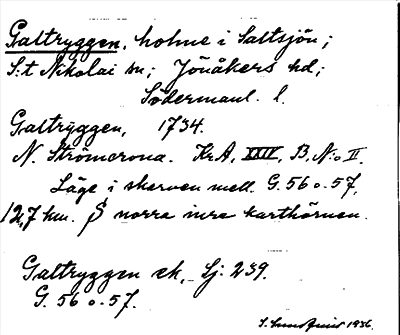 Galtryggen, holme i Saltsjön;
S:t Nikolai sn; Jönåkers hd;
Södermanl. l.
Galtryggen, 1734.
N. Strömcrona. KrA, XXIV, B, N:o II.
Läge i skerven mell. G. 56 o. 57,
12,7 km. S norra inre karthörnen.
Galtryggen ek, Sj. 239.
G. 56 o. 57.
1936.